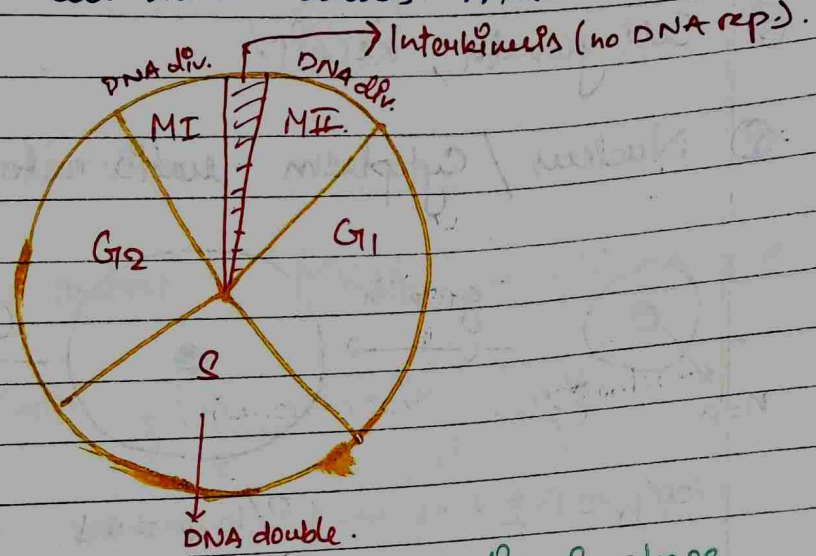 Interkinesis (no DNA rep.).
DNA div.
DNA div.
MI
MII.
G2
G1
S
DNA double.